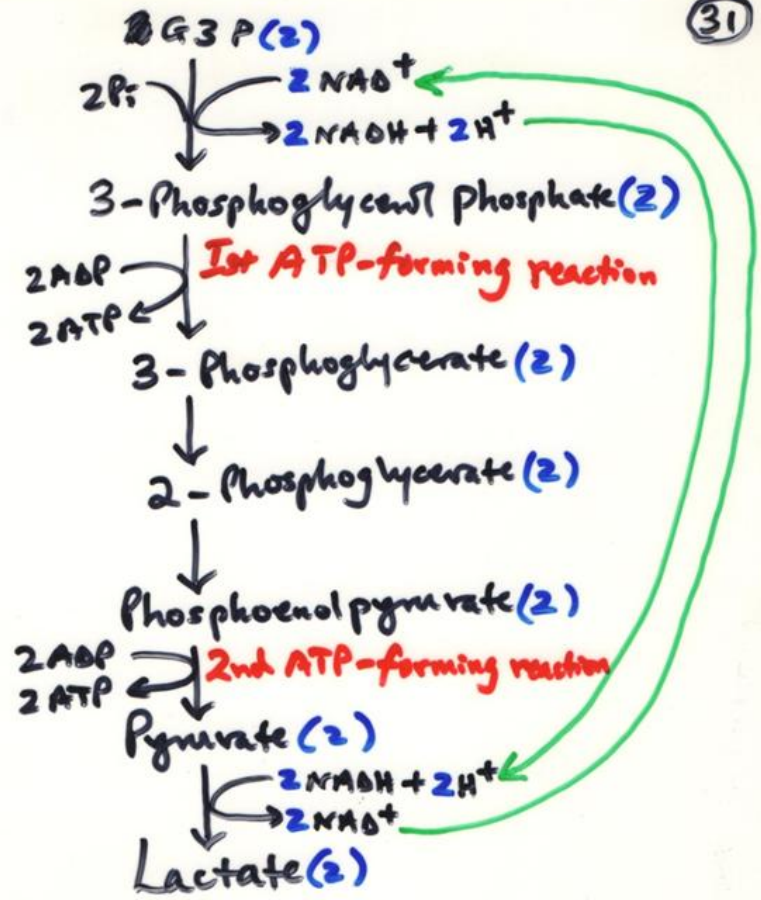 31
G3P(2)
2Pi
2NAD+
2NADH + 2H+
3-Phosphoglycerol phosphate(2)
2ADP
Ist ATP-forming reaction
2ATP
3-Phosphoglycerate(2)
2-Phosphoglycerate(2)
Phosphoenolpyruvate(2)
2ADP
2nd ATP-forming reaction
2ATP
Pyruvate(2)
2NADH + 2H+
2NAD+
Lactate(2)